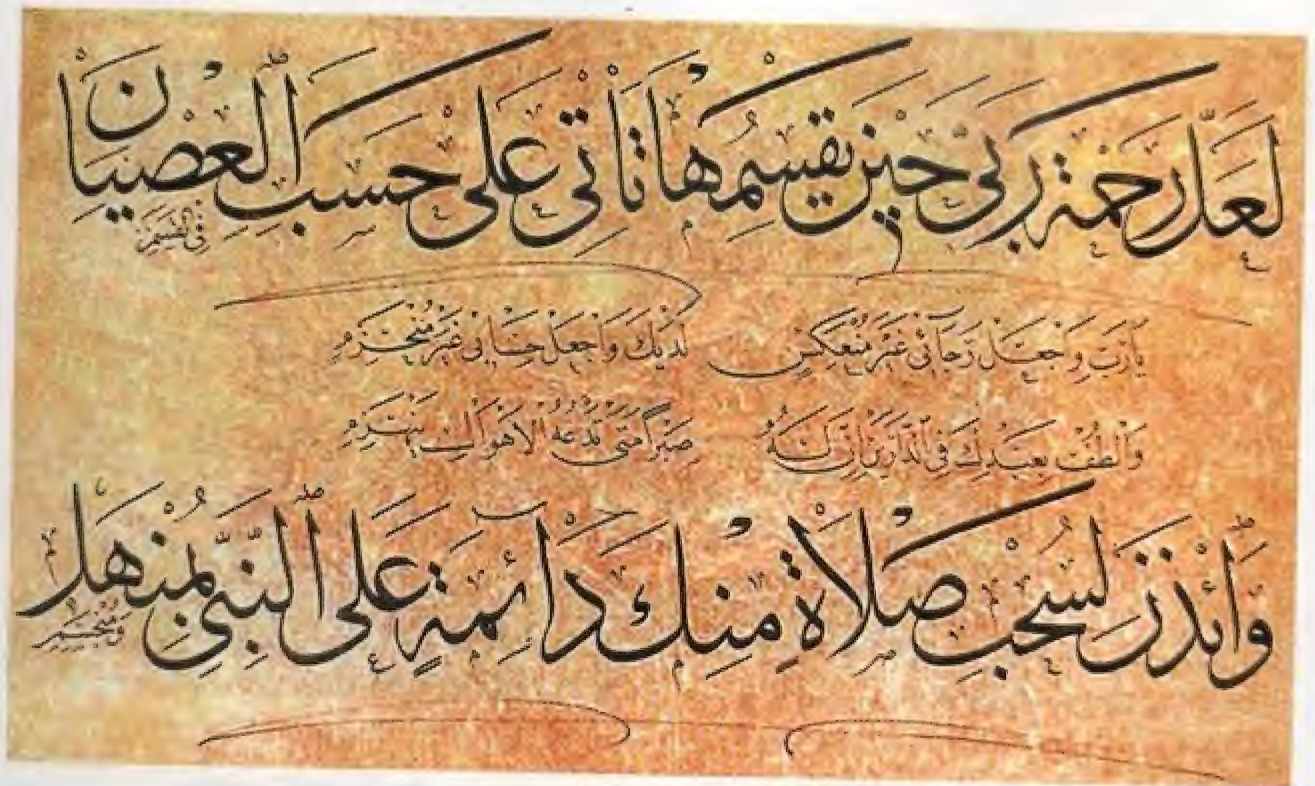 لَعَلَّ رَحْمَةَ رَبِّي حِينَ يَقْسِمُهَا تَأْتِي عَلَى حَسَبِ ٱلْعِصْيَانِ فِي الْقِسَمِ
يَارَبِّ وَاجْعَلْ رَجَآئِي غَيْرَ مُنْعَكِسٍ لَدَيْكَ وَاجْعَلْ حِسَابِي غَيْرَ مُنْخَرِمِ
وَالْطُفْ بِعَبْدِكَ فِي الدَّارَيْنِ إِنَّ لَهُ صَبْرًا مَتَى تَدْعُهُ الْأَهْوَالُ يَنْهَزِمِ
وَٱئْذَنْ لِسُحْبِ صَلَاةٍ مِنْكَ دَآئِمَةٍ عَلَى ٱلنَّبِيِّ بِمُنْهَلٍّ وَمُنْسَجِمِ